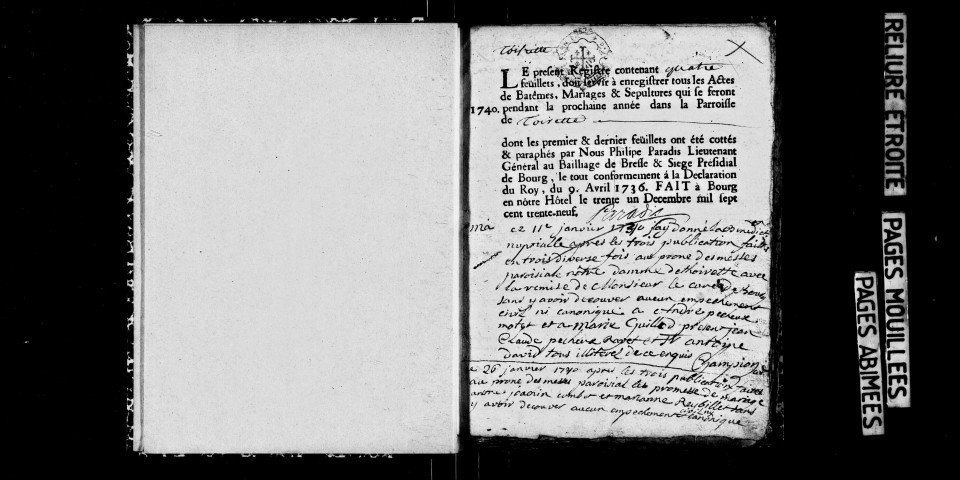 Toirette
LE present Registre contenant quatre
feuillets, doit servir à enregistrer tous les Actes
de Batêmes, Mariages & Sepultures qui se feront
1740. pendant la prochaine année dans la Parroisse
de Toirette
dont les premier & dernier feüillets ont été cottés
& paraphés par Nous Philipe Paradis Lieutenant
Général au Bailliage de Bresse & Siege Présidial
de Bourg, le tout conformement á la Declaration
du Roy, du 9. Avril 1736. FAIT à Bourg
en nôtre Hôtel le trente un Decembre mil sept
cent trente-neuf,
Paradis
ma ce 11e janvier 1740 jay donné la benediction
nuptialle apres les trois publication faittes
en trois diverse fois au prone des messes
paroisiale nôtre damme de Toirette avec
la remise de Monsieur le curé de
sans y avoir decouver aucun empechement
civil ni canonique a Andre pecheux
et a marie Guilled present jean
Claude pecheux et antoine
david tous illiterel de ce enquis Champion
ce 26 janvier 1740 apres les trois publication
au prone des messes paroisial les promesse de mariage
entre et marianne Reybillet sans
y avoir decouver aucun empechement canonique
RELIURE ETROITE
PAGES MOUILLEES
PAGES ABIMEES